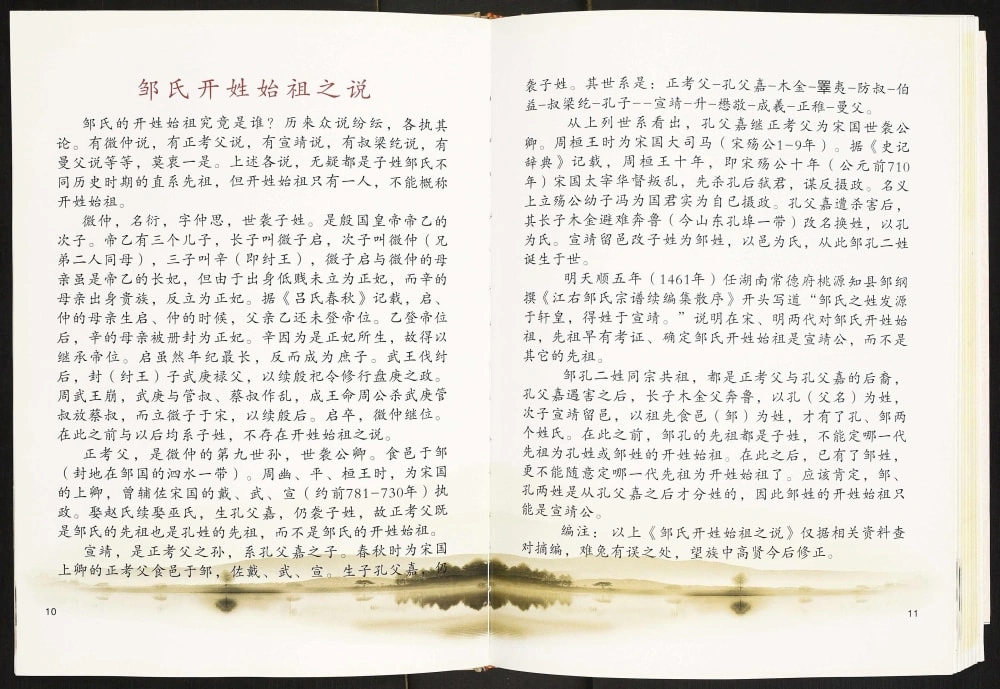 邹氏开姓始祖之说
邹氏的开姓始祖究竟是谁？历来众说纷纭，各执其
论。有微仲说，有正考父说，有宣靖说，有叔梁纥说，有
曼父说等等，莫衷一是。上述各说，无疑都是子姓邹氏不
同历史时期的直系先祖，但开姓始祖只有一人，不能概称
开姓始祖。
微仲，名衍，字仲思，世袭子姓。是殷国皇帝帝乙的
次子。帝乙有三个儿子，长子叫微子启，次子叫微仲（兄
弟二人同母），三子叫辛（即纣王），微子启与微仲的母
亲虽是帝乙的长妃，但由于出身低贱未立为正妃，而辛的
母亲出身贵族，反立为正妃。据《吕氏春秋》记载，启、
仲的母亲生启、仲的时候，父亲乙还未登帝位。乙登帝位
后，辛的母亲被册封为正妃。辛因为是正妃所生，故得以
继承帝位。启虽然年纪最长，反而成为庶子。武王伐纣
后，封（纣王）子武庚禄父，以续殷祀令修行盘庚之政。
周武王崩，武庚与管叔、蔡叔作乱，成王命周公杀武庚管
叔放蔡叔，而立微子于宋，以续殷后。启卒，微仲继位。
在此之前与以后均系子姓，不存在开姓始祖之说。
正考父，是微仲的第九世孙，世袭公卿。食邑于邹
（封地在邹国的泗水一带）。周幽、平、桓王时，为宋国
的上卿，曾辅佐宋国的戴、武、宣（约前781-730年）执
政。娶赵氏续娶巫氏，生孔父嘉，仍袭子姓，故正考父既
是邹氏的先祖也是孔姓的先祖，而不是邹氏的开姓始祖。
宣靖，是正考父之孙，系孔父嘉之子。春秋时为宋国
上卿的正考父食邑于邹，佐戴、武、宣。生子孔父嘉，仍
10
袭子姓。其世系是：正考父-孔父嘉-木金-睪夷-防叔-伯
益-叔梁纥-孔子--宣靖-升-懋敬-成羲-正稚-曼父。
从上列世系看出，孔父嘉继正考父为宋国世袭公
卿。周桓王时为宋国大司马（宋殇公1-9年）。据《史记
辞典》记载，周桓王十年，即宋殇公十年（公元前710
年）宋国太宰华督叛乱，先杀孔后弑君，谋反摄政。名义
上立殇公幼子冯为国君实为自已摄政。孔父嘉遭杀害后，
其长子木金避难奔鲁（今山东孔埠一带）改名换姓，以孔
为氏。宣靖留邑改子姓为邹姓，以邑为氏，从此邹孔二姓
诞生于世。
明天顺五年（1461年）任湖南常德府桃源知县邹纲
撰《江右邹氏宗谱续编集散序》开头写道“邹氏之姓发源
于轩皇，得姓于宣靖。”说明在宋、明两代对邹氏开姓始
祖，先祖早有考证、确定邹氏开姓始祖是宣靖公，而不是
其它的先祖。
邹孔二姓同宗共祖，都是正考父与孔父嘉的后裔，
孔父嘉遇害之后，长子木金父奔鲁，以孔（父名）为姓，
次子宣靖留邑，以祖先食邑（邹）为姓，才有了孔、邹两
个姓氏。在此之前，邹孔的先祖都是子姓，不能定哪一代
先祖为孔姓或邹姓的开姓始祖。在此之后，已有了邹姓，
更不能随意定哪一代先祖为开姓始祖了。应该肯定，邹、
孔两姓是从孔父嘉之后才分姓的，因此邹姓的开姓始祖只
能是宣靖公。
编注：以上《邹氏开姓始祖之说》仅据相关资料查
对摘编，难免有误之处，望族中高贤今后修正。
11